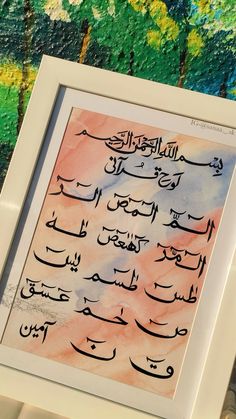 بِسْمِ اللهِ الرَّحْمٰنِ الرَّحِيْمِ
لوح قرآنی
الٓمّٓ الٓمٓصٓ الٓرٰ
الٓمّٓرٰ كٓهٰيٰعٓصٓ طٰهٰ
طٰسٓ طٰسٓمٓ يٰسٓ
صٓ حٰمٓ عٓسٓقٓ
قٓ نٓ آمین